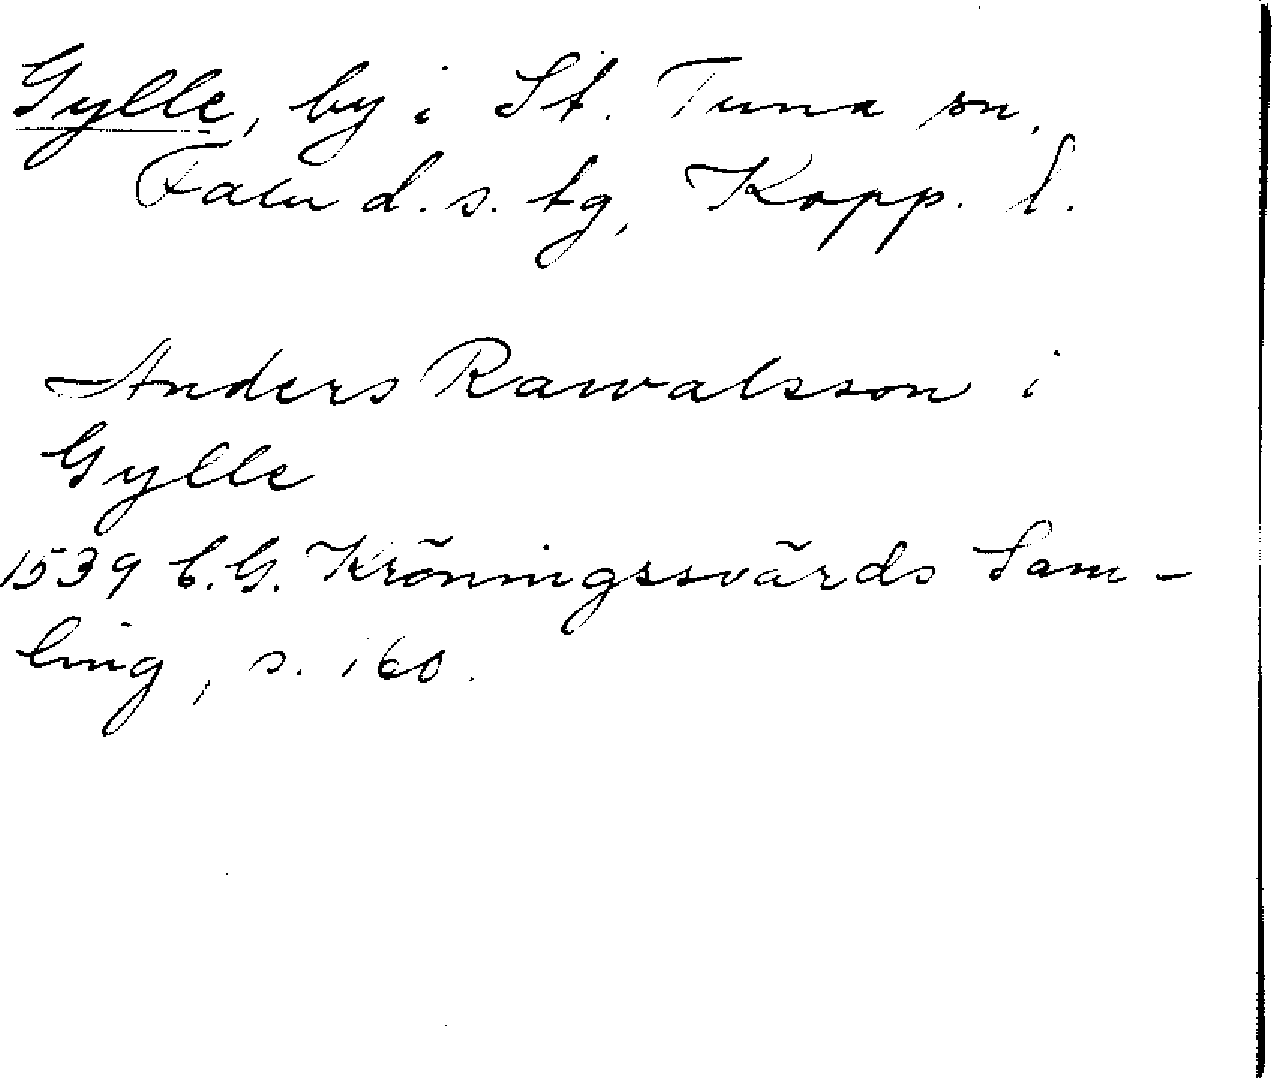 Gylle, by i St. Tuna sn,
Falu d. s. tg, Kopp. l.
Anders Rawalsson i
Gylle
1539 C. G. Kröningssvärds Sam-
ling, s. 160.